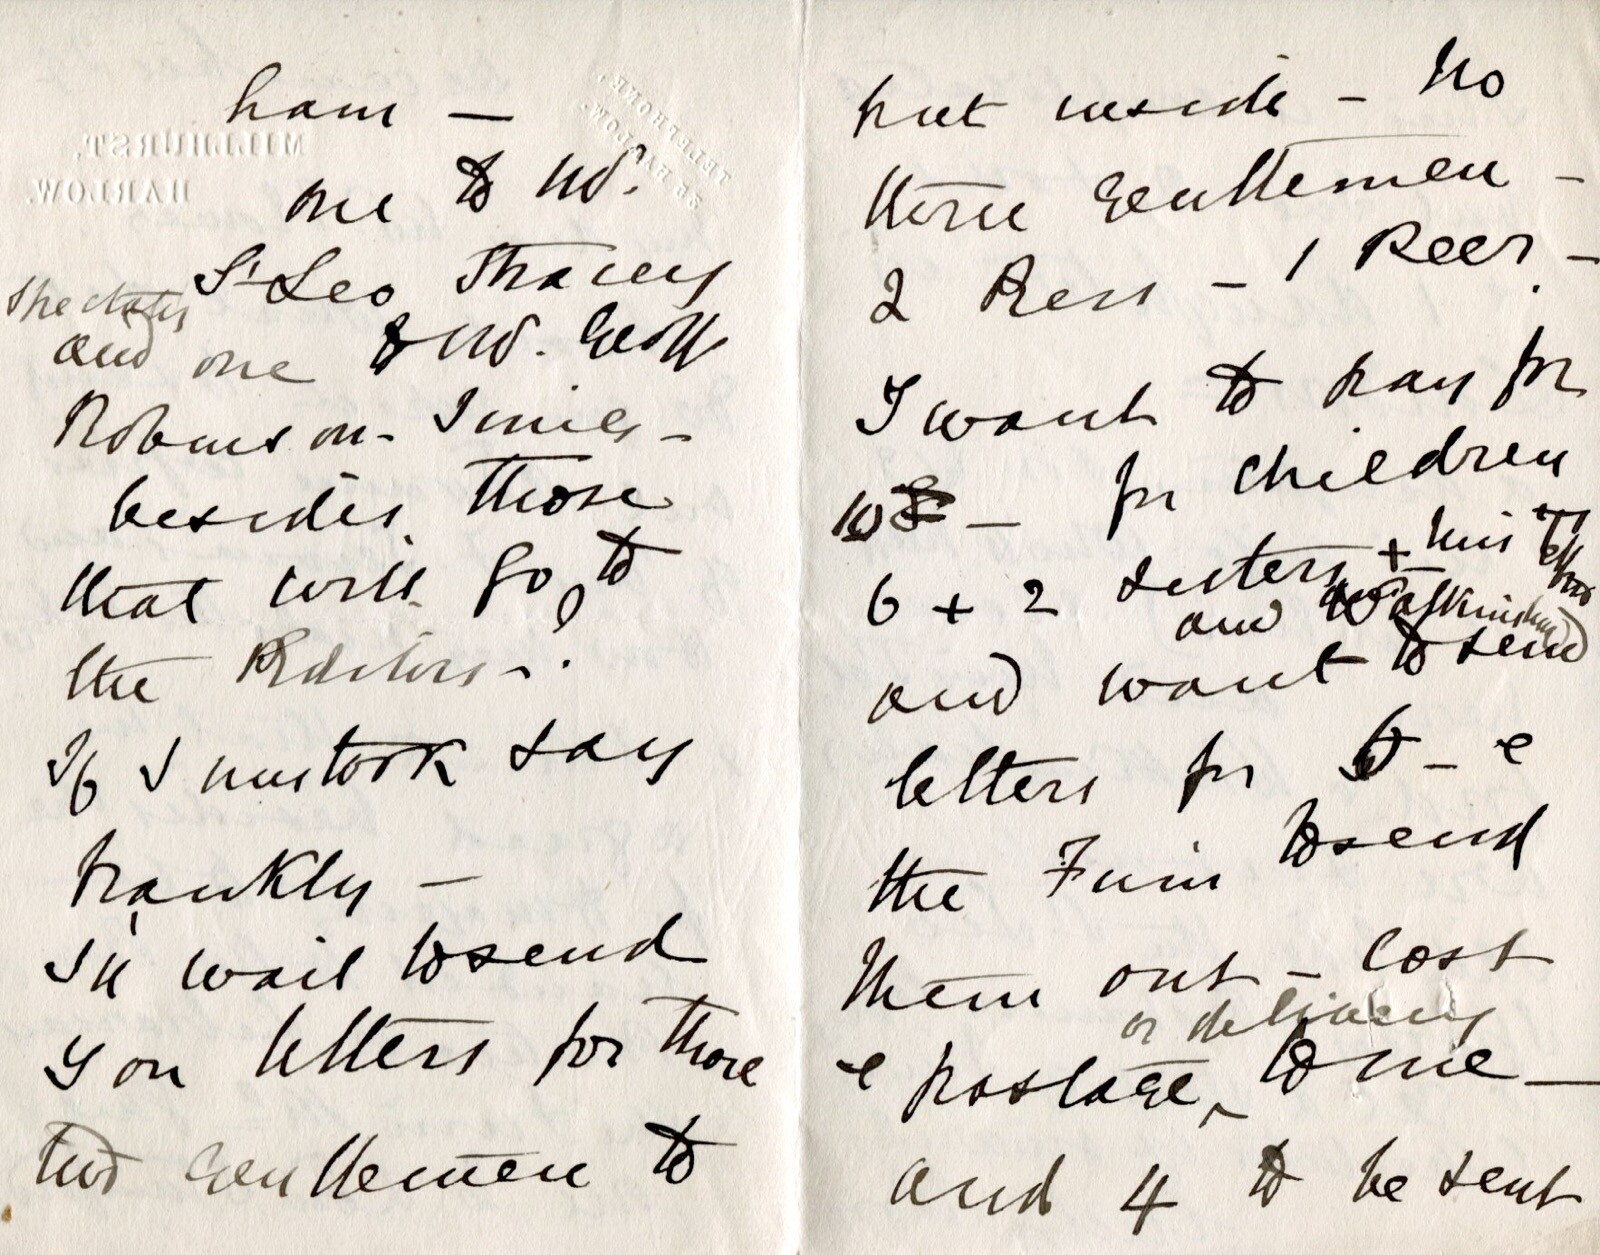 ham —
one to Mr.
St Leo Strachey
Spectator
and one to Mr. Geoff
Robinson - Times -
besides those
that will go to
the Editors - ?
If I mistook say
frankly —
I'll wait to send
you letters for those
two Gentlemen to
put inside - No
three Gentlemen -
2 Press - 1 Peer -
I want to pay for
10 — for children
6 + 2 sisters +
and
and want to send
letters for 6 - e
the Firm to send
them out - Cost
or delivery
e postage, to me —
and 4 to be sent
MILLHURST,
HARLOW.
TELEPHONE,
HARLOW.